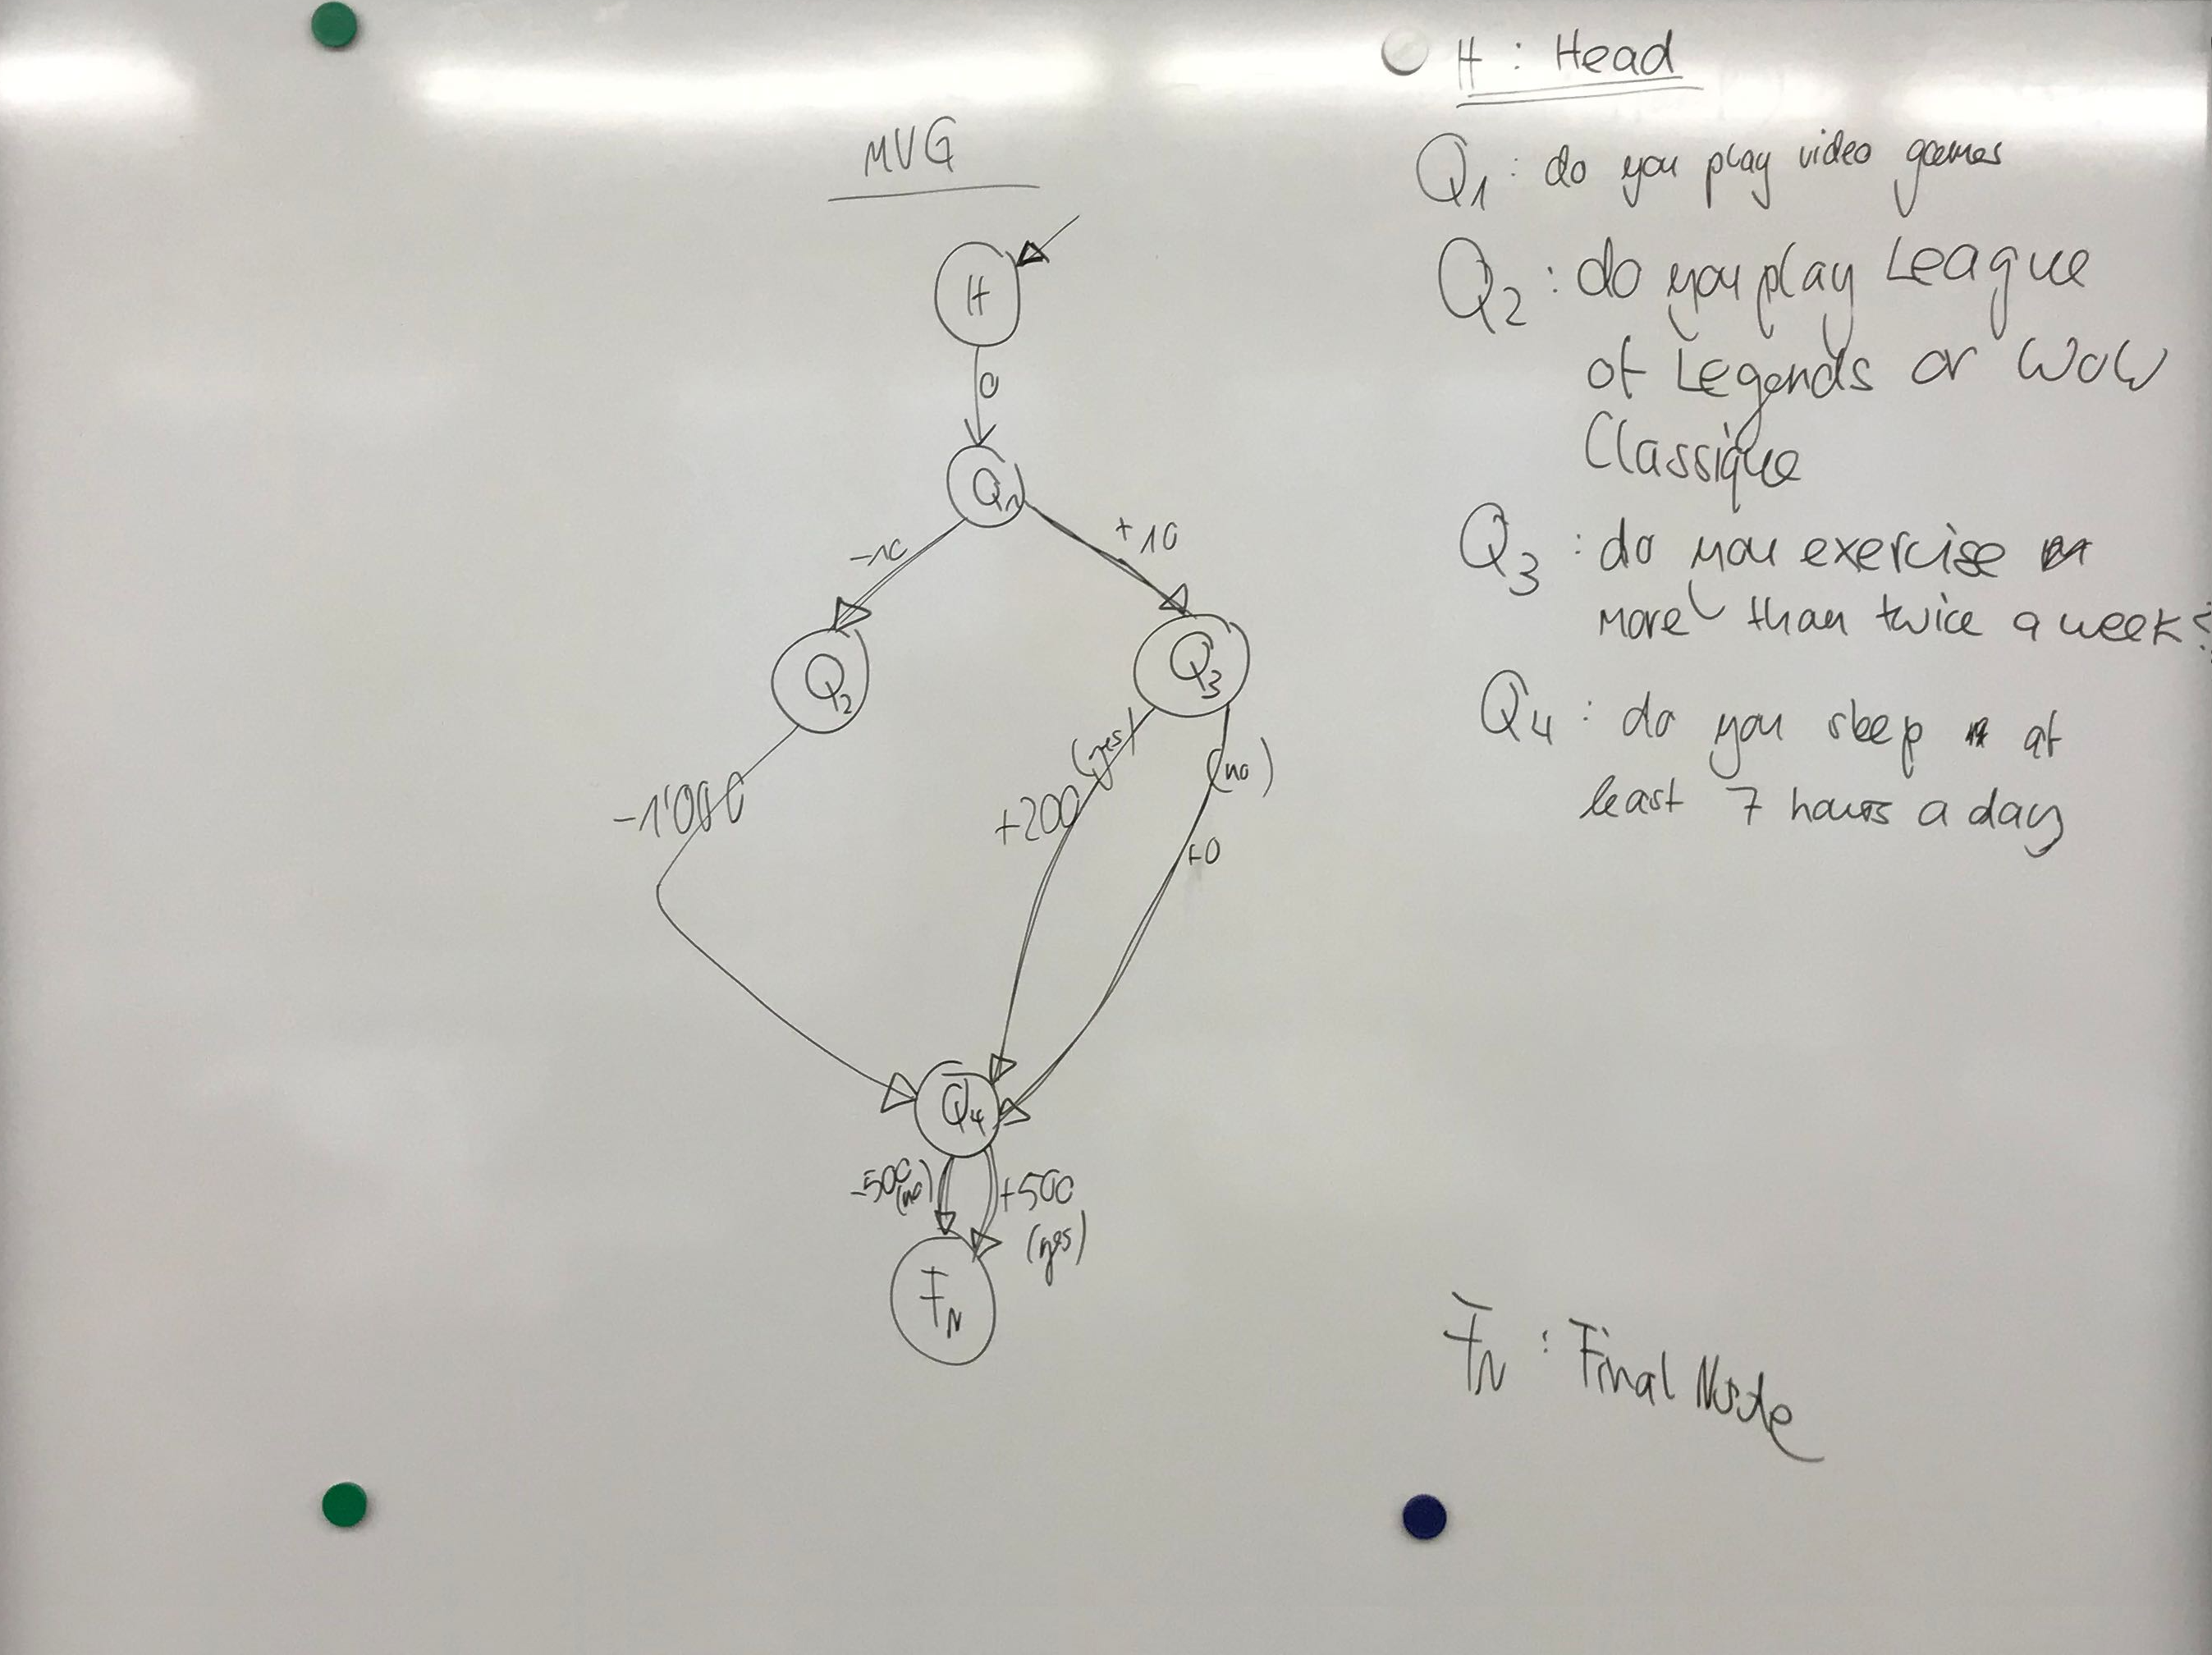 MVG
H
0
Q1
-10
+10
Q2
Q3
(yes)
(no)
-1'000
+200
+0
Q4
-500
(no)
+500
(yes)
FN
H : Head
Q1 : do you play video games
Q2 : do you play League
of Legends or WoW
Classique
Q3 : do you exercise
more than twice a week?
Q4 : do you sleep at
least 7 hours a day
FN : Final Node